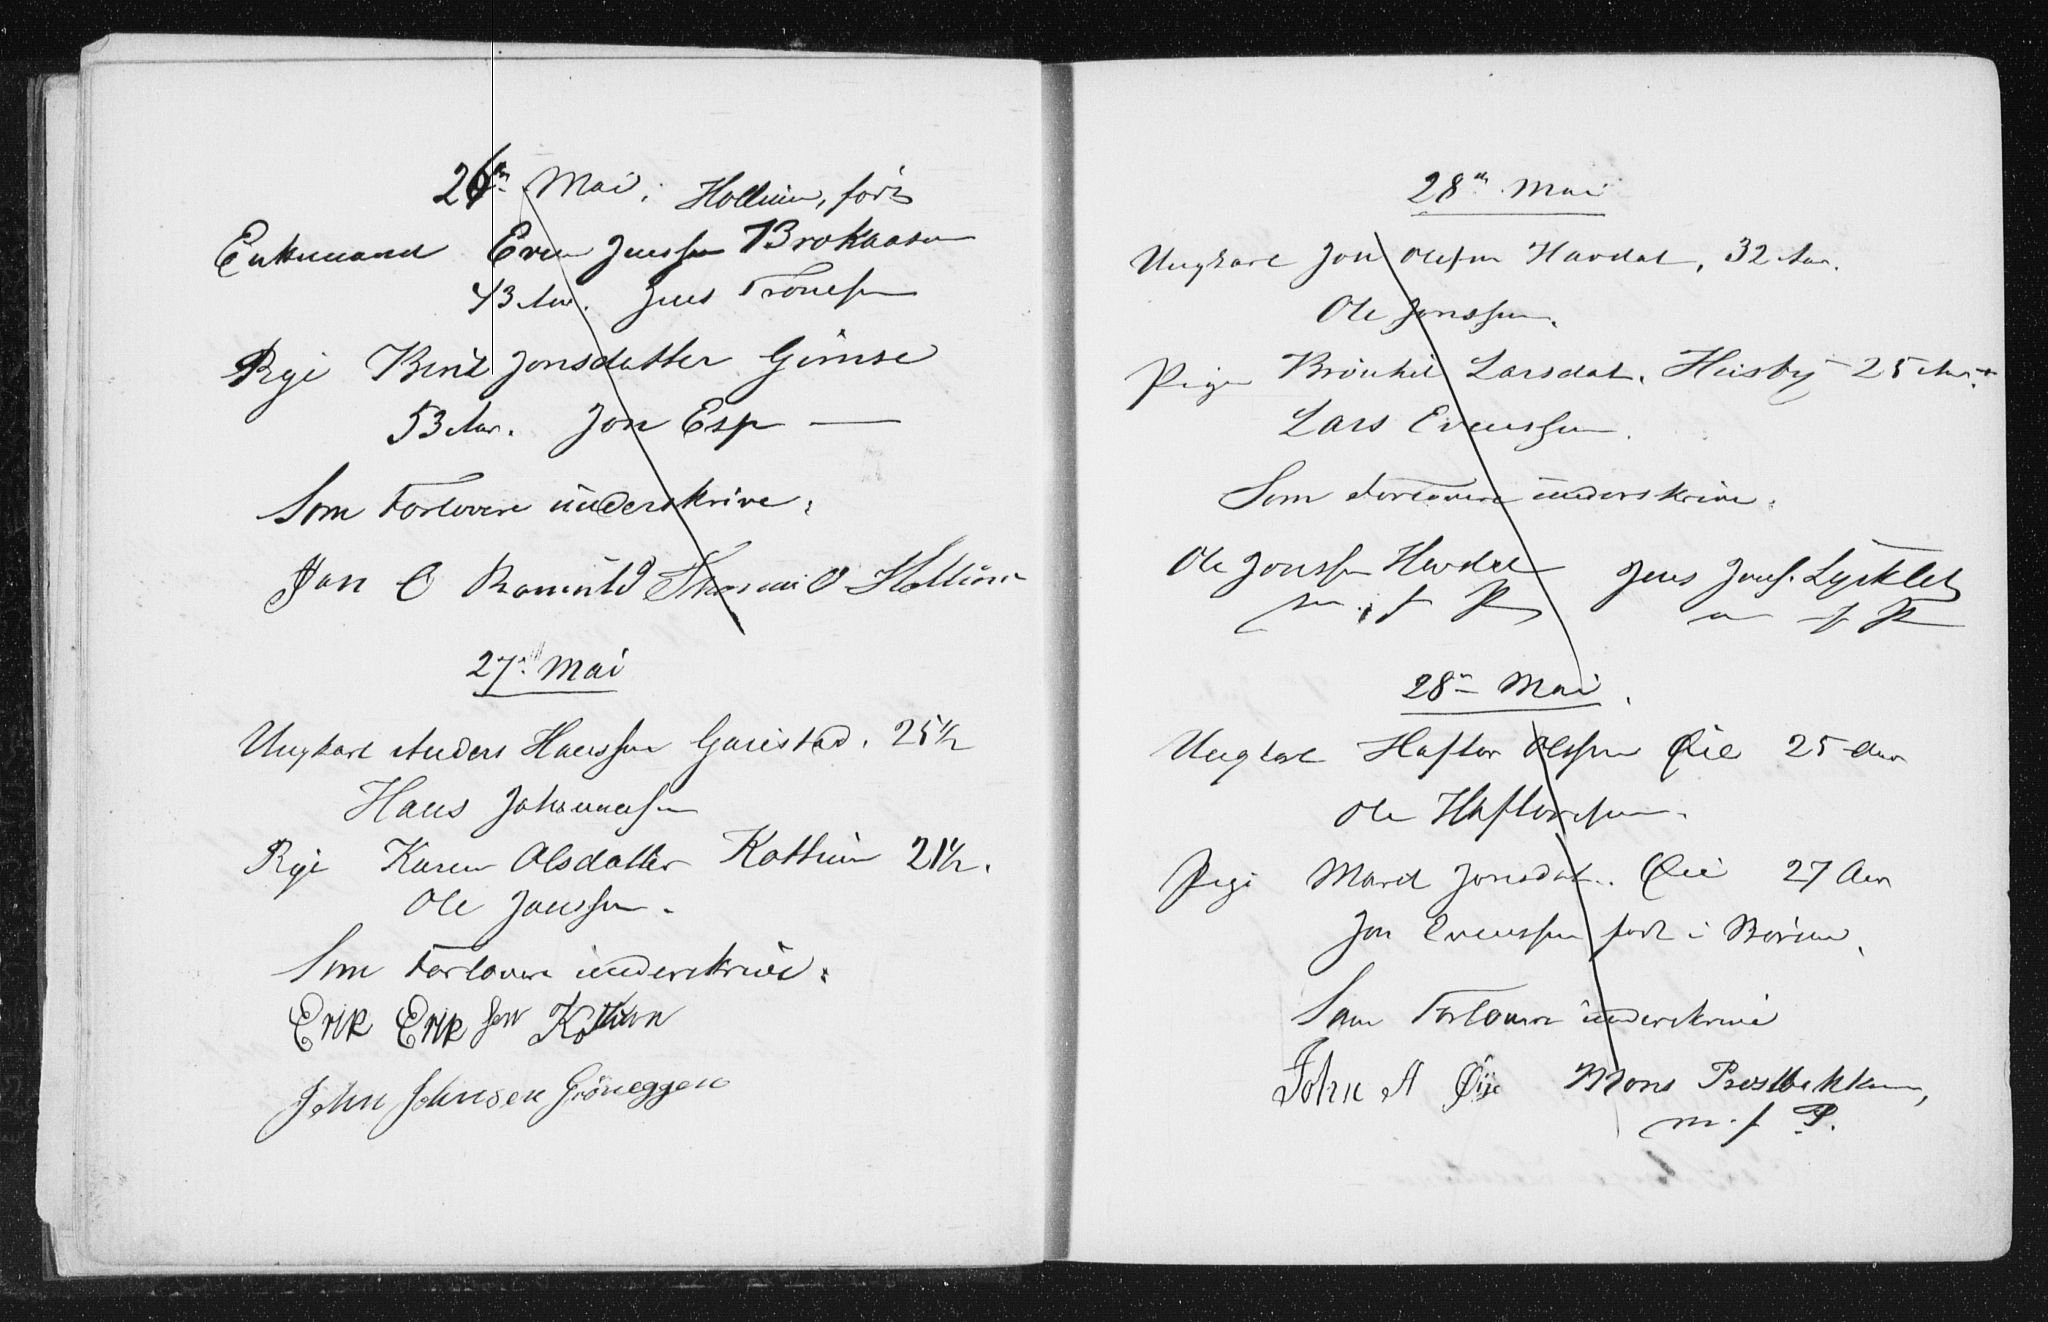 26de Mai. Hollum, født
Enkemand Even Jenssen Brokaasen
43 Aar. Jens Tronesen
Pige Berit Jonsdatter Gimse
53 Aar. Jon Esp —
Som Forlovere underskrive:
Jon O Romuld Thomas O Hollum
27de Mai
Ungkarl Anders Hanssen Gaustad. 25½
Hans Johannesen
Pige Karen Olsdatter Kottum 21½.
Ole Janssen.
Som Forlovere underskrive:
Erik Erik sen Kottum
John Johnsen Gröneggen
28de Mai
Ungkarl Jon Olesen Havdal, 32 Aar.
Ole Jonssen.
Pige Larsdat. Husby 25 Aar
Lars Evenssen.
Som Forlovere underskrive:
Ole Jonssen Havdal Jens Jens. Lysklet
m. f P m f P
28de Mai.
Ungkarl Haftor Olssen Øie 25 Aar
Ole Haftorsen.
Pige Marit Jonsdat. Øie 27 Aar
Jon Evenssen født i
Som Forlovere underskrive
John A Øije Mons Prestbakken,
m. f P.